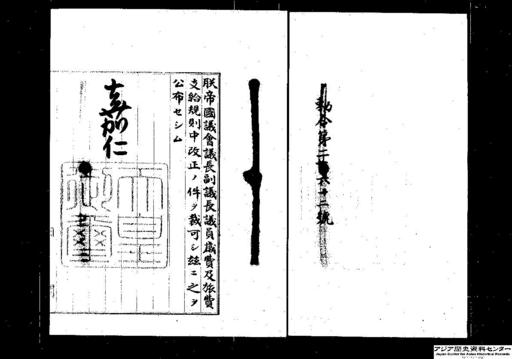 勅令第二百六十二號
朕帝國議會議長副議長議員歳費及旅費
支給規則中改正ノ件ヲ裁可シ玆ニ之ヲ
公布セシム
嘉仁
アジア歴史資料センター
Japan Center for Asian Historical Records